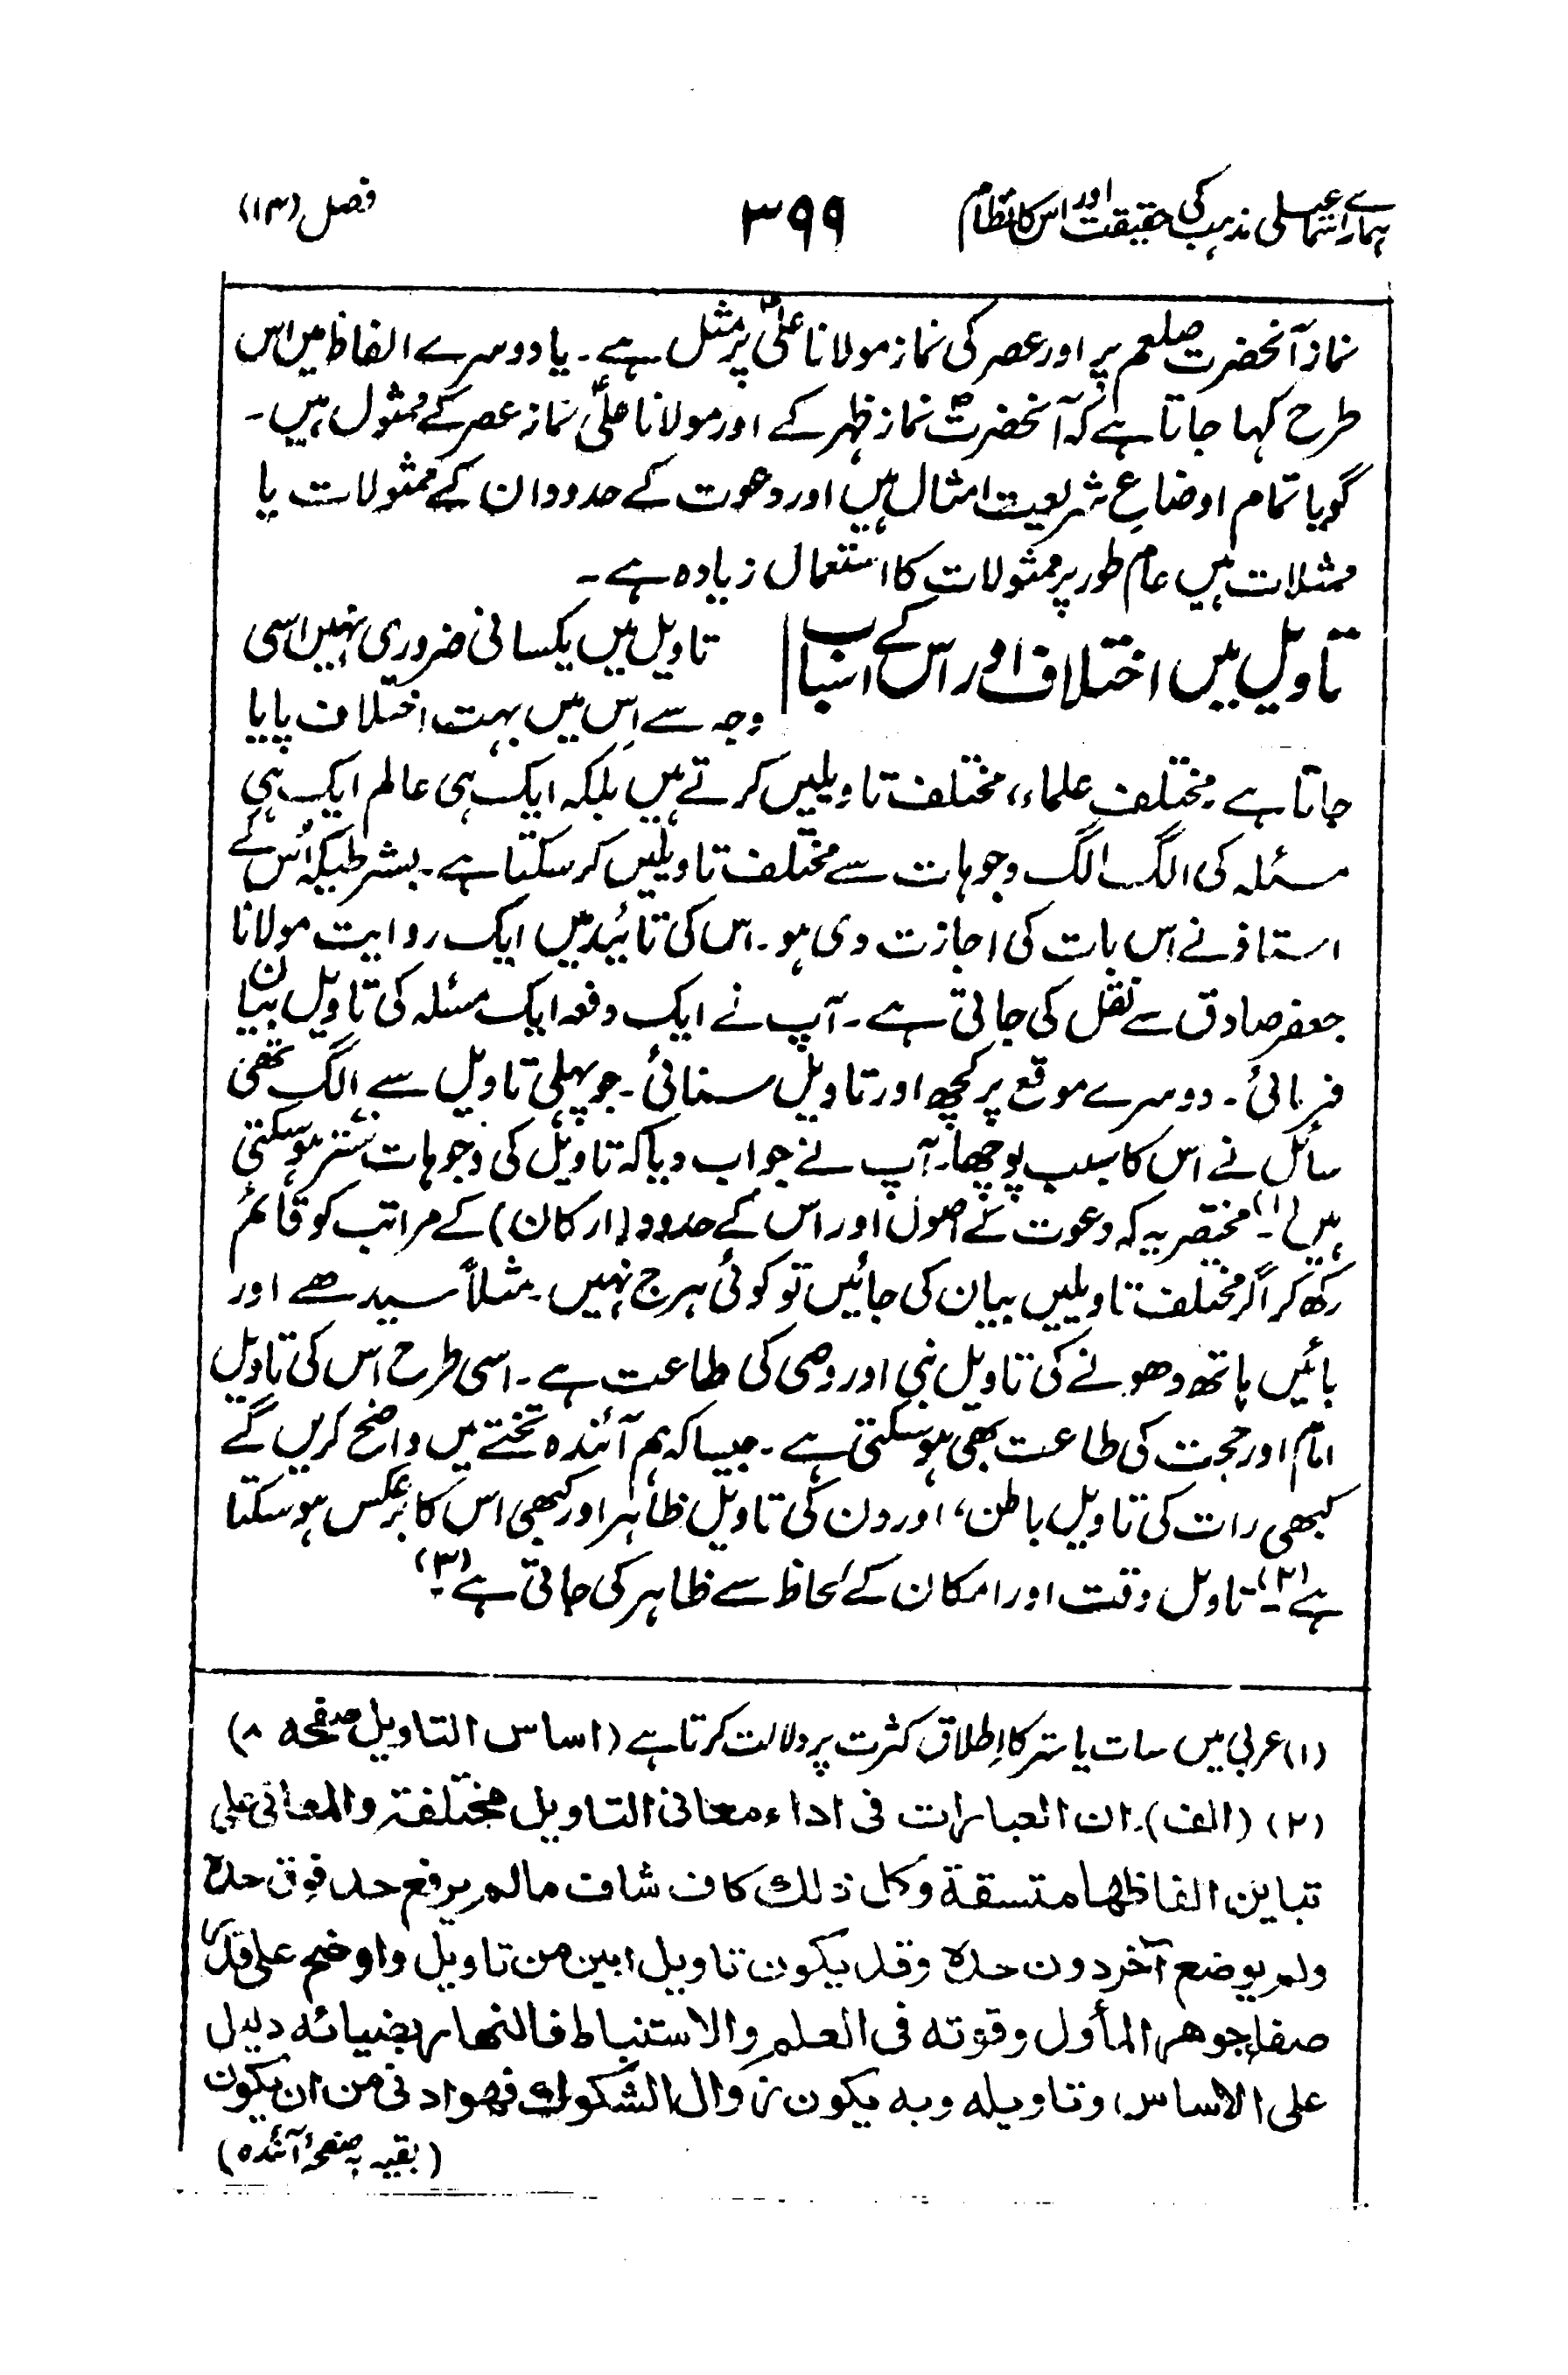 ہمارے اسماعیلی مذہب کی حقیقت اور اس کا نظام ۳۹۹ فصل (۱۳)
نماز آنحضرت صلعم پر اور عصر کی نماز مولانا علیؑ پر مثل ہے۔ یا دوسرے الفاظ میں اس
طرح کہا جاتا ہے کہ آنحضرتؐ نماز ظہر کے اور مولانا علیؑ نماز عصر کے ممثول ہیں۔
گویا تمام اوضاعِ شریعت امثال ہیں اور دعوت کے حدود ان کے ممثولات یا
ممثلات ہیں عام طور پر ممثولات کا استعمال زیادہ ہے۔
تاویل میں اختلاف اور اس کے اسباب
تاویل میں یکسانی ضروری نہیں اسی
وجہ سے اِس میں بہت اختلاف پایا
جاتا ہے۔ مختلف علماء، مختلف تاویلیں کرتے ہیں بلکہ ایک ہی عالم ایک ہی
مسئلہ کی الگ الگ وجوہات سے مختلف تاویلیں کر سکتا ہے۔ بشرطیکہ اُس کے
استاذ نے اس بات کی اجازت دی ہو۔ اس کی تائید میں ایک روایت مولانا
جعفر صادق سے نقل کی جاتی ہے۔ آپ نے ایک دفعہ ایک مسئلہ کی تاویل بیان
فرمائی۔ دوسرے موقع پر کچھ اور تاویل سنائی۔ جو پہلی تاویل سے الگ تھی
سائل نے اس کا سبب پوچھا۔ آپ نے جواب دیا کہ تاویل کی وجوہات ستّر ہو سکتی
ہیں (۱)۔ مختصر یہ کہ دعوت کے اصول اور اس کے حدود (ارکان) کے مراتب کو قائم
رکھ کر اگر مختلف تاویلیں بیان کی جائیں تو کوئی ہرج نہیں۔ مثلاً سیدھے اور
بائیں ہاتھ دھونے کی تاویل نبی اور وصی کی طاعت ہے۔ اسی طرح اس کی تاویل
امام اور حجت کی طاعت بھی ہو سکتی ہے۔ جیسا کہ ہم آئندہ تختے میں واضح کریں گے
کبھی رات کی تاویل باطن، اور دن کی تاویل ظاہر اور کبھی اس کا برعکس ہو سکتا
ہے (۲)۔ تاویل وقت اور امکان کے لحاظ سے ظاہر کی جاتی ہے (۳)۔
(۱) عربی میں سات یا ستر کا اِطلاق کثرت پر دلالت کرتا ہے (اساس التاویل صفحہ ۸)
(۲) (الف)۔ ان العبارات فی اداء معانی التاویل مختلفة والمعانی علی
تباین الفاظها متسقة وکل ذلك کاف شاف مالم یرفع حد فوق حدہ
ولم یوضع آخر دون حدہ وقد یکون تاویل ابین من تاویل واوضح علی قدر
صفاء جوهر المأول وقوته فی العلم والاستنباط فالنهار بضیائه دلیل
علی الاساس وتاویله وبه یکون زوال الشکوك فهو ادنی من ان یکون
(بقیہ بہ صفحۂ آئندہ)